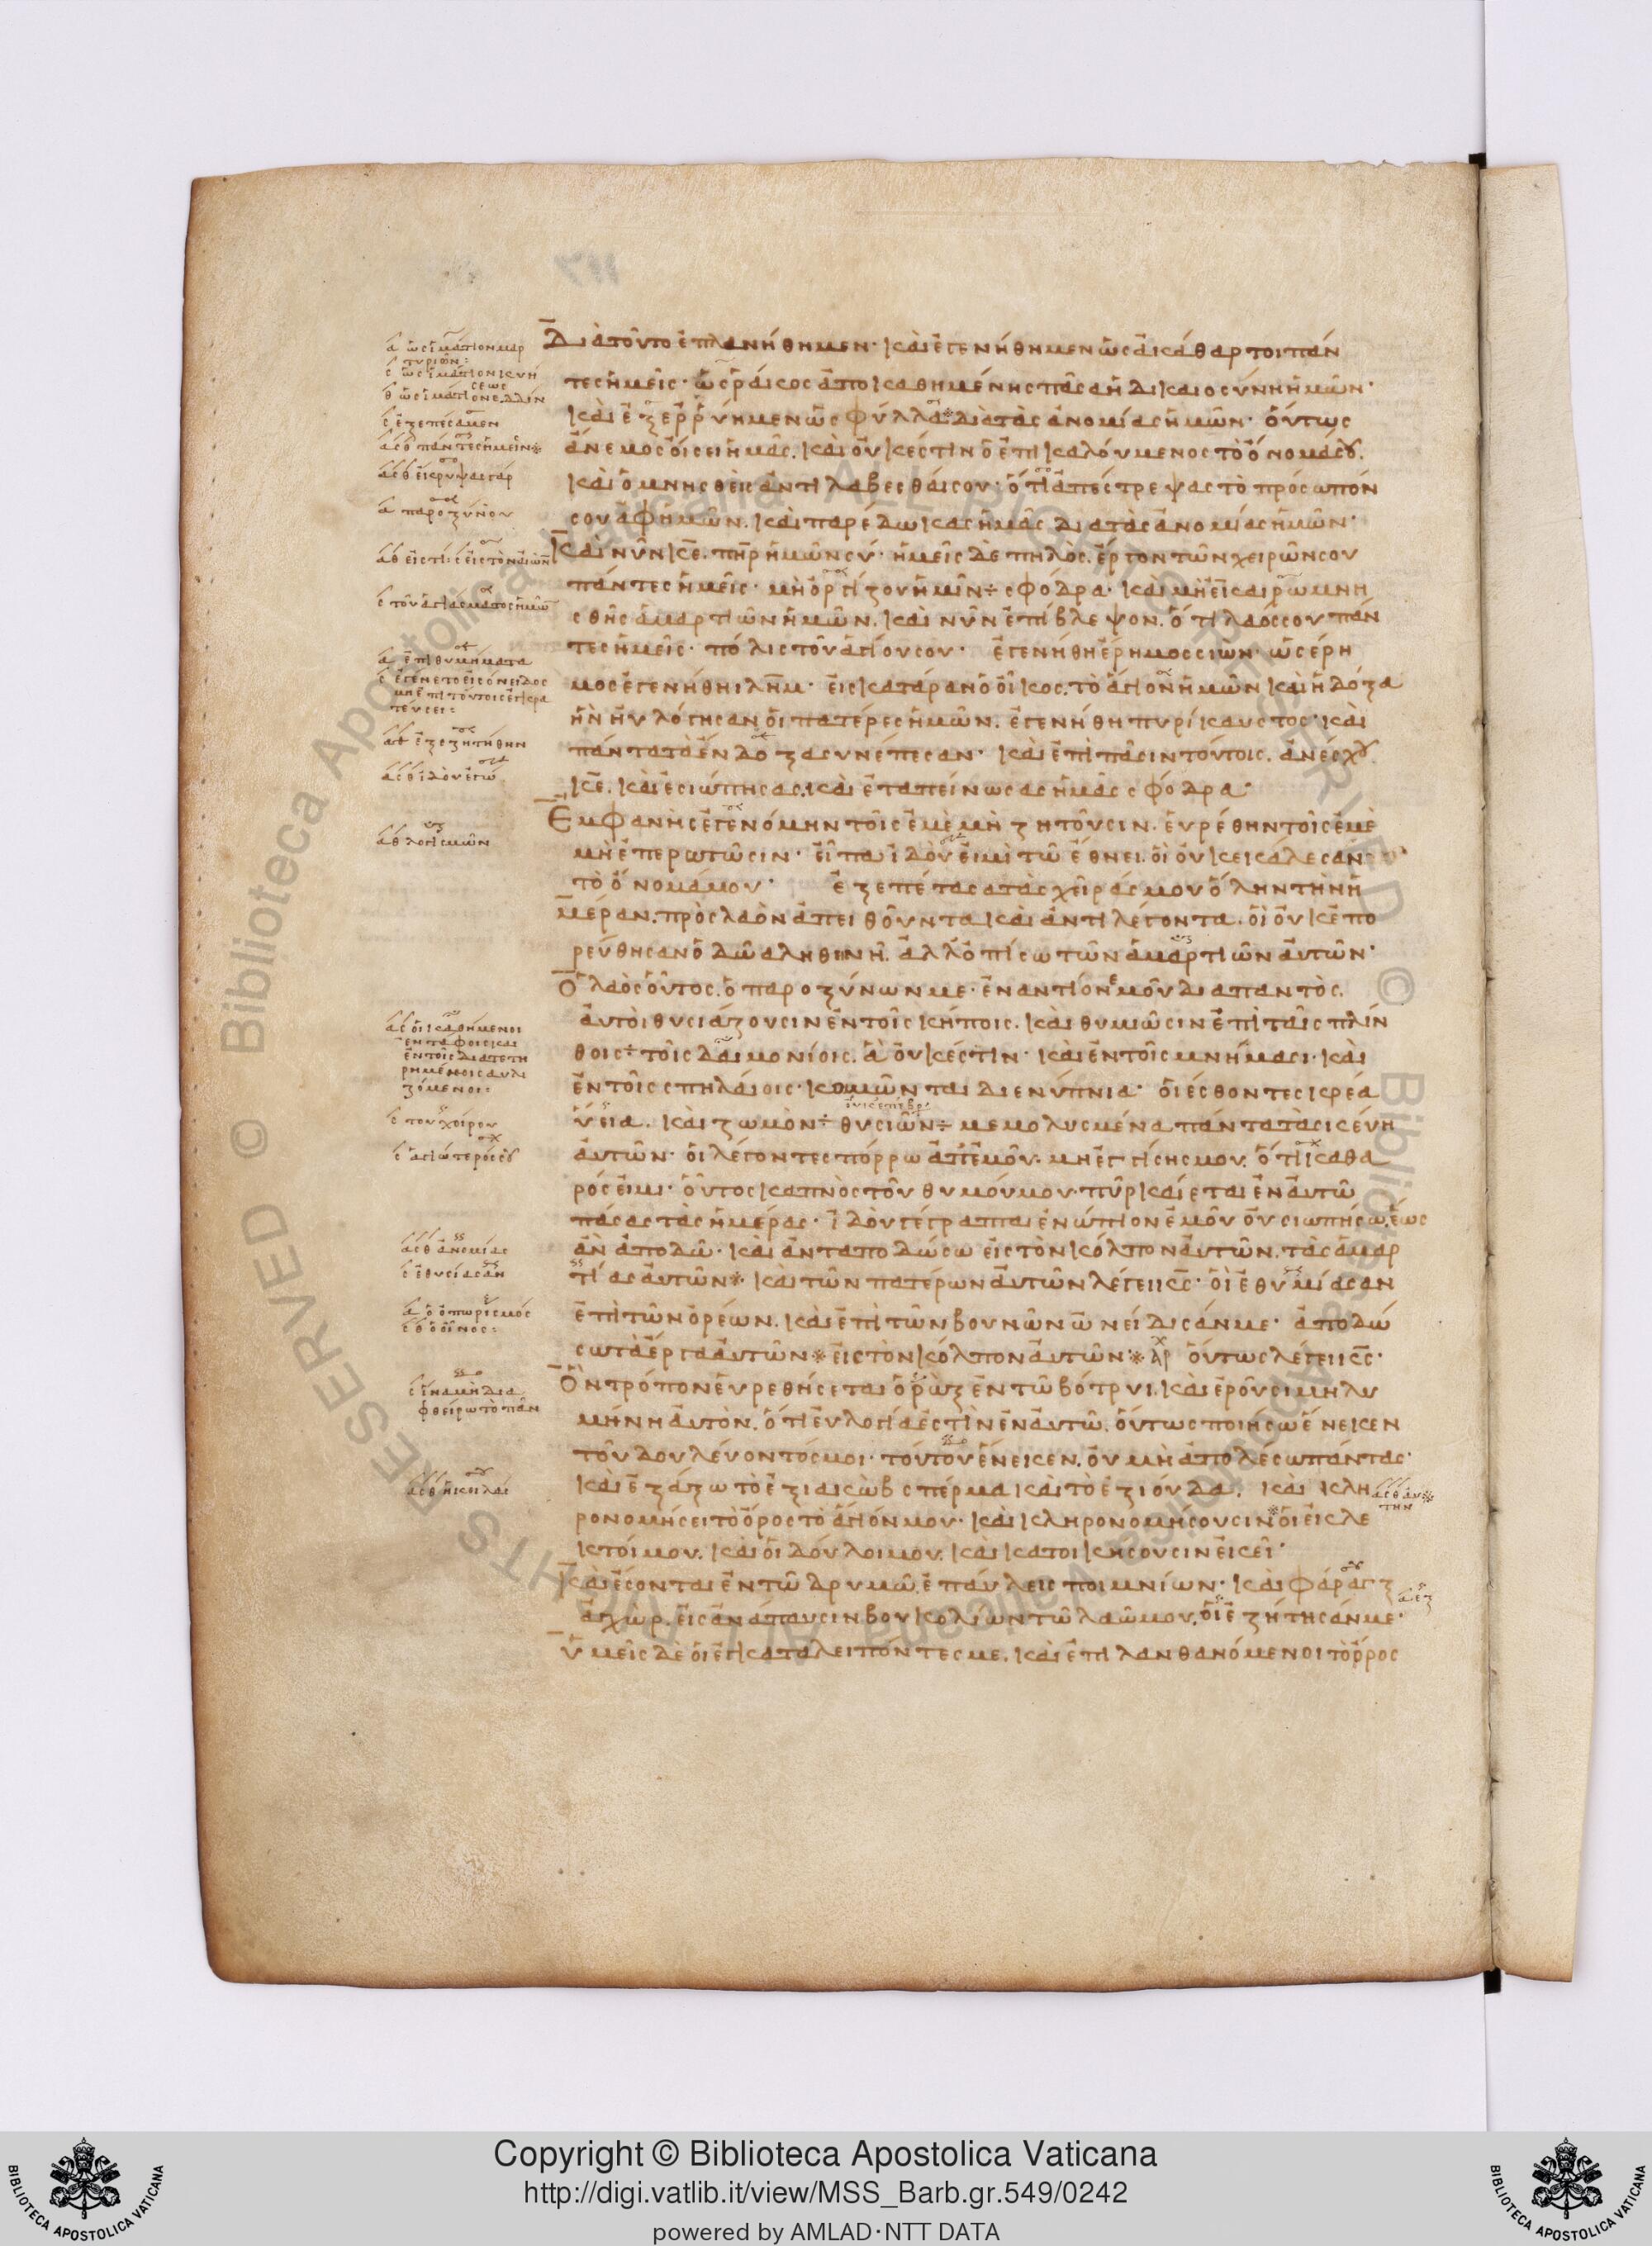 Διὰ τοῦτο ἐπλανήθημεν· καὶ ἐγενήθημεν ὡς ἀκάθαρτοι πάν
τες ἡμεῖς· ὡς ῥάκος ἀποκαθημένης πᾶσα ἡ δικαιοσύνη ἡμῶν·
καὶ ἐξερρύημεν ὡς φύλλα※ διὰ τὰς ἀνομίας ἡμῶν· οὕτως
ἄνεμος οἴσει ἡμᾶς. καὶ οὐκ ἔστιν ὁ ἐπικαλούμενος τὸ ὄνομά σου.
καὶ ὁ μνησθεὶς ἀντιλαβέσθαι σου· ὅτι ἀπέστρεψας τὸ πρόσωπόν
σου ἀφ' ἡμῶν. καὶ παρέδωκας ἡμᾶς διὰ τὰς ἀνομίας ἡμῶν·
Καὶ νῦν κε. πηρ ἡμῶν σύ· ἡμεῖς δὲ πηλὸς. ἔργον τῶν χειρῶν σου
πάντες ἡμεῖς· μὴ ὀργίζου ἡμῖν÷ σφόδρα· καὶ μὴ ἐν καιρῷ μνη
σθῇς ἁμαρτιῶν ἡμῶν. καὶ νῦν ἐπίβλεψον. ὅτι λαός σου πάν
τες ἡμεῖς· πόλις τοῦ ἁγίου σου· ἐγενήθη ἔρημος σιὼν· ὡς ἔρη
μος ἐγενήθη ιλημ· εἰς κατάραν ὁ οἶκος. τὸ ἅγιον ἡμῶν καὶ ἡ δόξα
ἣν ηὐλόγησαν οἱ πατέρες ἡμῶν. ἐγενήθη πυρίκαυστος· καὶ
πάντα τὰ ἔνδοξα συνέπεσαν· καὶ ἐπὶ πᾶσιν τούτοις. ἀνέσχου
κε. καὶ ἐσιώπησας. καὶ ἐταπείνωσας ἡμᾶς σφόδρα·
Ἐμφανὴς ἐγενόμην τοῖς ἐμὲ μὴ ζητοῦσιν. εὑρέθην τοῖς ἐμὲ
μὴ ἐπερωτῶσιν· εἶπα ἰδού εἰμι τῷ ἔθνει. οἳ οὐκ ἐκάλεσαν
τὸ ὄνομά μου· ἐξεπέτασα τὰς χεῖράς μου ὅλην τὴν ἡ
μέραν. πρὸς λαὸν ἀπειθοῦντα καὶ ἀντιλέγοντα. οἳ οὐκ ἐπο
ρεύθησαν ὁδῷ ἀληθινῇ. ἀλλ' ὀπίσω τῶν ἁμαρτιῶν αὐτῶν·
Ὁ λαὸς οὗτος. ὁ παροξύνων με· ἐναντίον ἐμοῦ διαπαντὸς.
αὐτοὶ θυσιάζουσιν ἐν τοῖς κήποις. καὶ θυμιῶσιν ἐπὶ ταῖς πλίν
θοις÷ τοῖς δαιμονίοις. ἃ οὐκ ἔστιν· καὶ ἐν τοῖς μνήμασι· καὶ
ἐν τοῖς σπηλαίοις· κοιμῶνται δι' ἐνύπνια· οἱ ἔσθοντες κρέα
ὕεια. καὶ ζωμὸν÷ θυσιῶν÷ μεμολυσμένα πάντα τὰ σκεύη
αὐτῶν· οἱ λέγοντες πόρρω ἀπ' ἐμοῦ. μὴ ἐγγίσῃς μου. ὅτι καθα
ρός εἰμι· οὗτος καπνὸς τοῦ θυμού μου· πῦρ καίεται ἐν αὐτῷ
πάσας τὰς ἡμέρας· ἰδοὺ γέγραπται ἐνώπιον ἐμοῦ οὐ σιωπήσω. ἕως
ἂν ἀποδῶ· καὶ ἀνταποδώσω εἰς τὸν κόλπον αὐτῶν. τὰς ἁμαρ
τίας αὐτῶν※. καὶ τῶν πατέρων αὐτῶν λέγει κς· οἳ ἐθυμίασαν
ἐπὶ τῶν ὀρέων. καὶ ἐπὶ τῶν βουνῶν ὠνείδισάν με· ἀποδώ
σω τὰ ἔργα αὐτῶν※ εἰς τὸν κόλπον αὐτῶν·※ οὕτως λέγει κς·
Ὃν τρόπον εὑρεθήσεται ὁ ῥὼξ ἐν τῷ βότρυι. καὶ ἐροῦσι μὴ λυ
μήνῃ αὐτὸν. ὅτι εὐλογία ἐστὶν ἐν αὐτῷ. οὕτως ποιήσω ἕνεκεν
τοῦ δουλεύοντός μοι· τούτου ἕνεκεν. οὐ μὴ ἀπολέσω πάντας·
καὶ ἐξάξω τὸ ἐξ ιακὼβ σπέρμα καὶ τὸ ἐξ ιούδα. καὶ κλη
ρονομήσει τὸ ὄρος τὸ ἅγιόν μου· καὶ κληρονομήσουσιν※ οἱ ἐκλε
κτοί μου. καὶ οἱ δοῦλοί μου. καὶ κατοικήσουσιν ἐκεῖ·
Καὶ ἔσονται ἐν τῷ δρυμῷ. ἐπαύλεις ποιμνίων· καὶ φάραγξ
ἀχὼρ. εἰς ἀνάπαυσιν βουκολίων τῷ λαῷ μου. οἳ ἐζήτησάν με·
ὑμεῖς δὲ οἱ ἐγκαταλειπόντες με. καὶ ἐπιλανθανόμενοι τὸ ὄρος
ἀ ὡς ἱμάτιον μαρ
τυριῶν:
θ ὡς ἱμάτιον
σ ἐξεπέσαμεν
ἀσθ πάντες ἡμεῖν※
ἀ παροξύνου
ἀ ἐπιθυμήματα
σ ἐγένετο εἰς ὄνειδος
μὴ ἐπὶ τούτοις ἐγκρα
τεύσει:
ἐξεζητήθην
ἀσθ ἰδοὺ ἐγώ
ἀθ λογισμῶν
ἀσ οἱ καθήμενοι
ἐν τάφοις καὶ
ζόμενοι:
σ τοῦ χοίρου
σ ἁγιώτερός σου
ἀσθ ἀνομίας
σ ἐθυσίασαν
ἀ ὁ ὀπωρισμός
σθ ὁ οἶνος:
σ ἵνα μὴ δια
φθείρω τὸ πᾶν
ἀσθ αὐ
τὴν
© Biblioteca Apostolica Vaticana ALL RIGHTS RESERVED
Copyright © Biblioteca Apostolica Vaticana
http://digi.vatlib.it/view/MSS_Barb.gr.549/0242
powered by AMLAD·NTT DATA
BIBLIOTECA APOSTOLICA VATICANA
BIBLIOTECA APOSTOLICA VATICANA